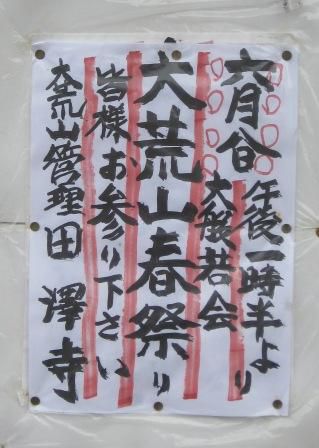 六月八日
午後一時半より
大般若会
大荒山春祭り
皆様お参り下さい
大荒山管理田澤寺